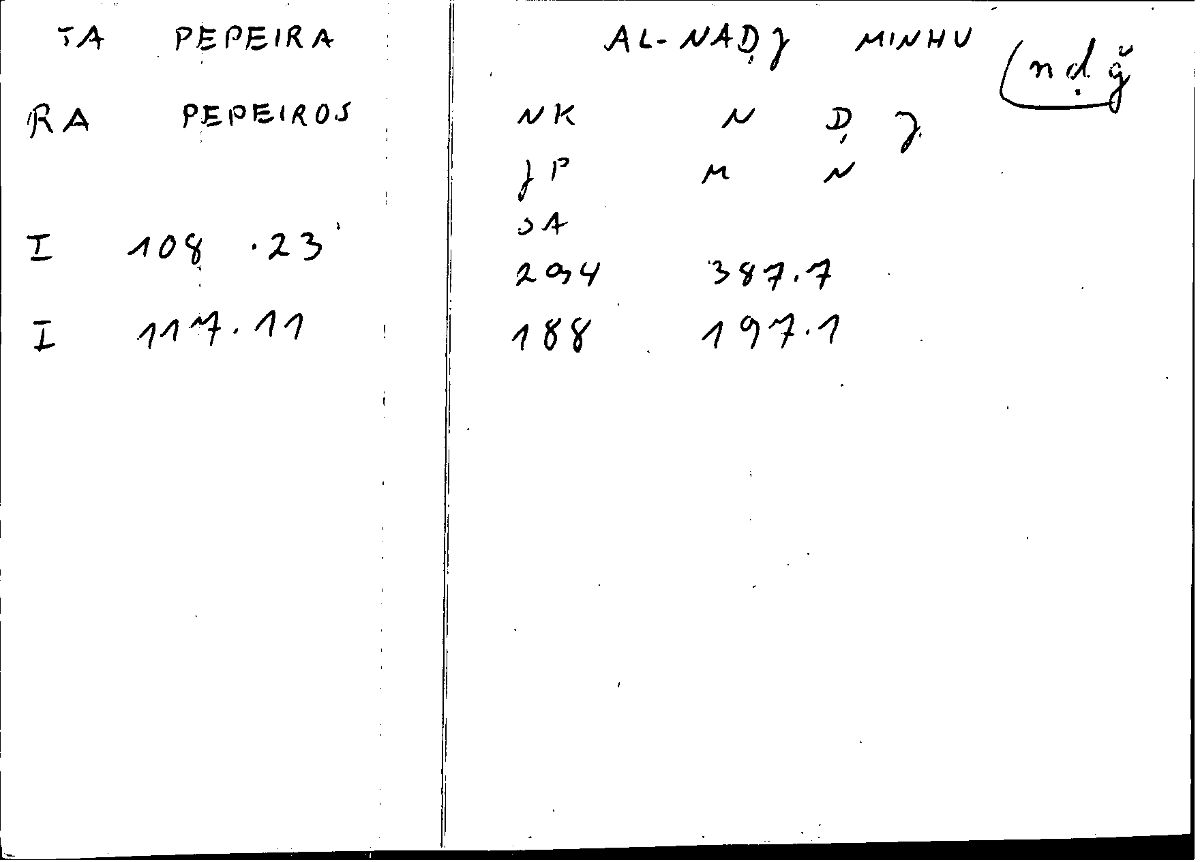 TA PEPEIRA
RA PEPEIROS
I 108 .23
I 117.11
AL-NAḌJ MINHU (nḍǧ
NK N Ḍ J
JP M N
SA
294 387.7
188 197.1